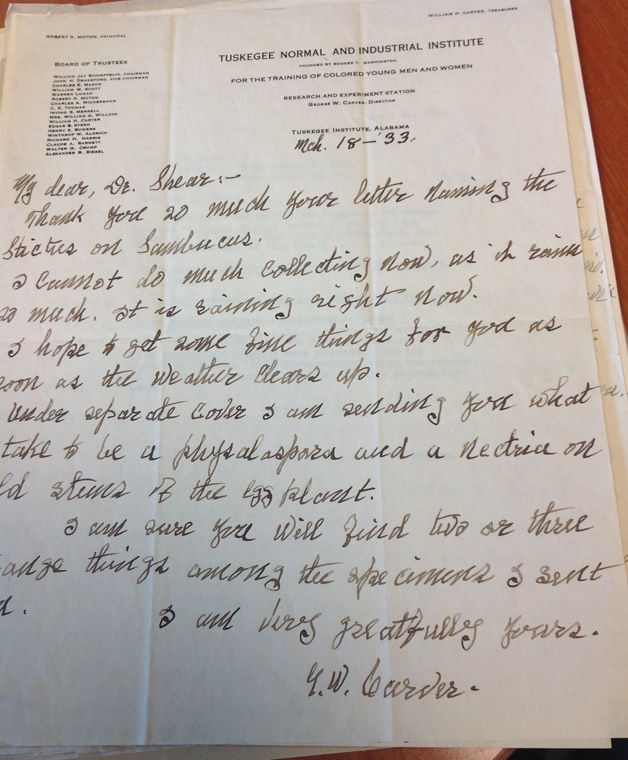 WILLIAM H. CARTER, TREASURER
ROBERT R. MOTON, PRINCIPAL
TUSKEGEE NORMAL AND INDUSTRIAL INSTITUTE
FOUNDED BY BOOKER T. WASHINGTON
FOR THE TRAINING OF COLORED YOUNG MEN AND WOMEN
RESEARCH AND EXPERIMENT STATION
GEORGE W. CARVER, DIRECTOR
TUSKEGEE INSTITUTE, ALABAMA
BOARD OF TRUSTEES
WILLIAM JAY SCHIEFFELIN, CHAIRMAN
JOHN H. DRAKEFORD, VICE-CHAIRMAN
CHARLES E. MASON
WILLIAM M. SCOTT
WARREN LOGAN
ROBERT R. MOTON
CHARLES A. WICKERSHAM
C. E. THOMAS
IRVING S. MERRELL
MRS. WILLIAM G. WILLCOX
WILLIAM H. CARTER
EDGAR B. STERN
HENRY E. BOWERS
WINTHROP W. ALDRICH
RICHARD H. HARRIS
CLAUDE A. BARNETT
WALTER G. CRUMP
ALEXANDER B. SIEGEL
Mch. 18-'33.
My dear, Dr. Shear:-
Thank you so much your letter naming the
Stictus on Sambucus.
I cannot do much collecting now, as it rains
so much. it is raining right now.
I hope to get some fine things for you as
soon as the weather clears up.
Under separate cover I am sending you what
take to be a physalospora and a Nectria on
ld stems of the egg plant.
I am sure you will find two or three
ange things among the specimens I sent
I am very greatfully yours.
G.W. Carver.